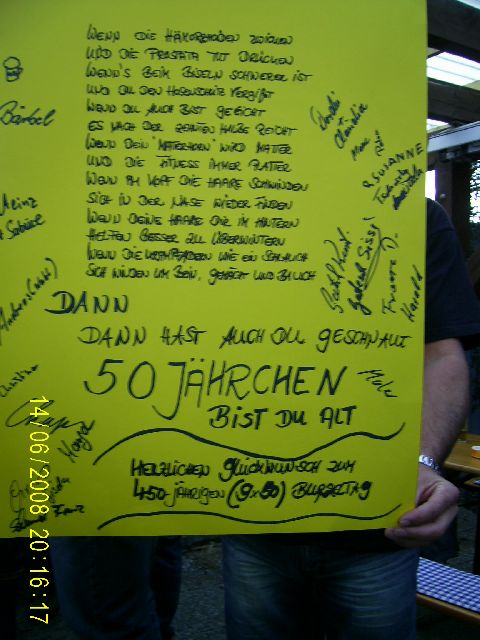 WENN DIE HÄMORRHOIDEN ZWICKEN
UND DIE PROSTATA TUT DRÜCKEN
WENN'S BEIM BISELN SCHWERER IST
UND DU DEN HOSENSCHLITZ VERGISST
WENN DU AUCH BIST GEEICHT
ES NACH DER ZEHNTEN HALBE REICHT
WENN DEIN "MATTERHORN" WIRD MATTER
UND DIE FITNESS IMMER PLATTER
WENN AM KOPF DIE HAARE SCHWINDEN
SICH IN DER NASE WIEDER FINDEN
WENN DEINE HAARE DIR IM HINTERN
HELFEN BESSER ZU ÜBERWINTERN
WENN DIE KRAMPFADERN WIE EIN SCHLAUCH
SICH WINDEN UM BEIN, GEMÄCHT UND BAUCH
DANN
DANN HAST AUCH DU GESCHNALLT
50 JÄHRCHEN
BIST DU ALT
HERZLICHEN GLÜCKWUNSCH ZUM
450-JÄHRIGEN (9x50) BURZELTAG
Bärbel
Heinz
+ Sabine
Claudia
SUSANNE
Harald
14/06/2008 20:16:17